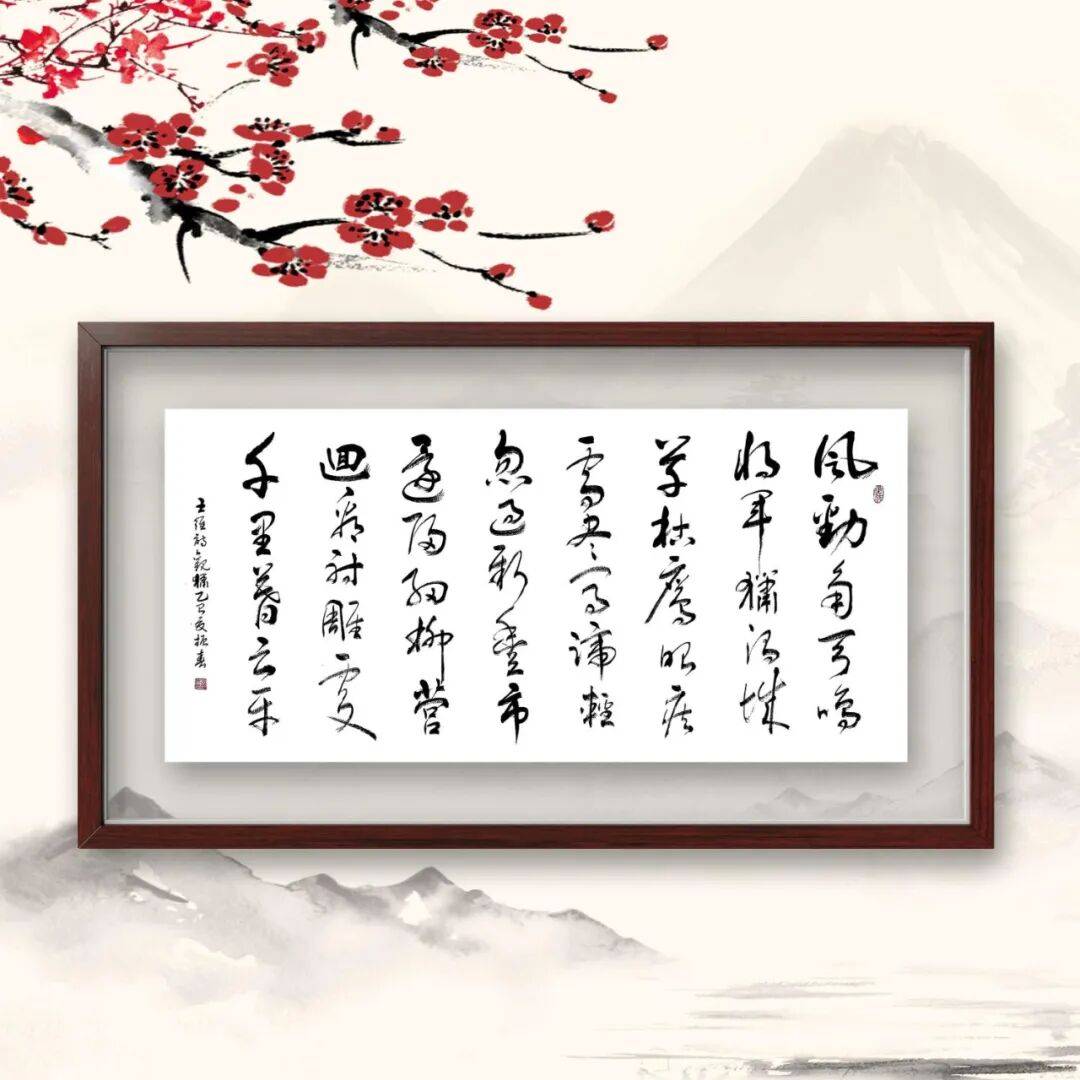 風勁角弓鳴
將軍獵渭城
草枯鷹眼疾
雪尽馬蹄輕
忽過新豐市
還歸細柳營
迴看射雕處
千里暮云平
王維詩觀獵乙巳夏振春